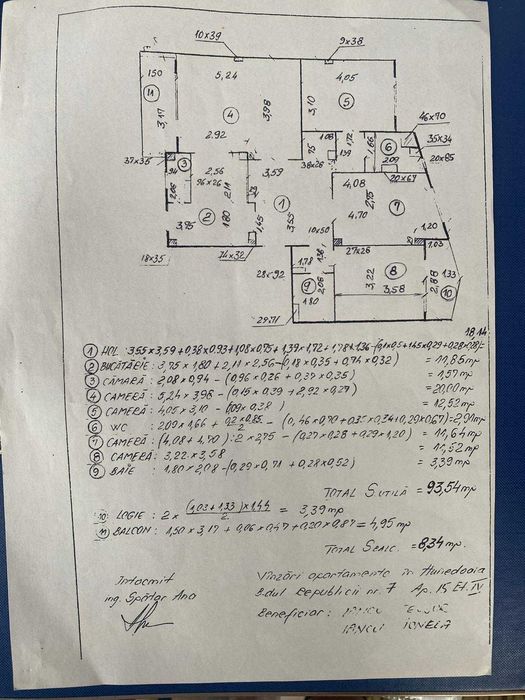 10×39
9×38
150
11
3,17
5,24
4
3,98
2.92
4,05
3,10
5
46×70
35×34
20×85
1,08
75
1,72
139
1,66
6
209
38×28
20×67
37×35
94
3
2,08
2,56
96×26
2,11
3,59
4,08
2,75
4.70
7
1,20
1
3,55
2
1,80
3,95
1,45
18×35
74×32
10×50
27×28
1,03
1,78
1,36
28×92
9
2,08
1,80
29×71
3,22
8
3,58
2,88
10
1,33
18.14
1 HOL: 3,55×3,59+0,38×0,93+1,08×0,75+1,39×1,72+1,78×1,36-(0,1×0,5+1,45×0,29+0,28×0,98)=
2 BUCĂTĂRIE: 3,95×1,80+2,11×2,56-(0,18×0,35+0,74×0,32) = 11,85 mp
3 CĂMARĂ: 2,08×0,94-(0,96×0,26+0,37×0,35) = 1,57 mp
4 CAMERĂ: 5,24×3,98-(0,15×0,39+2,92×0,27) = 20,00 mp
5 CAMERĂ: 4,05×3,10-(0,09×0,38) = 12,52 mp
6 WC: 2,09×1,66+ -(0,46×0,70+0,35×0,34+0,29×0,67)=2,91 mp
7 CAMERĂ: (4,08+4,70):2×2,75-(0,27×0,28+0,29×1,20) = 11,64 mp
8 CAMERĂ: 3,22×3,58 = 11,52 mp
9 BAIE: 1,80×2,08-(0,29×0,71+0,28×0,52) = 3,39 mp
TOTAL S.UTILĂ = 93,54 mp
10 LOGIE: 2×(1,03+1,33)×1,44/2 = 3,39 mp
11 BALCON: 1,50×3,17+0,06×0,47+0,20×0,87=4,95 mp
TOTAL S.BALC. = 8,34 mp.
Intocmit
ing. Spătar Ana
Vînzări apartamente în Hunedoara
Bdul Republicii nr. 7 Ap. 15 Et. IV
Beneficiar: IANCU
IANCU IONELA